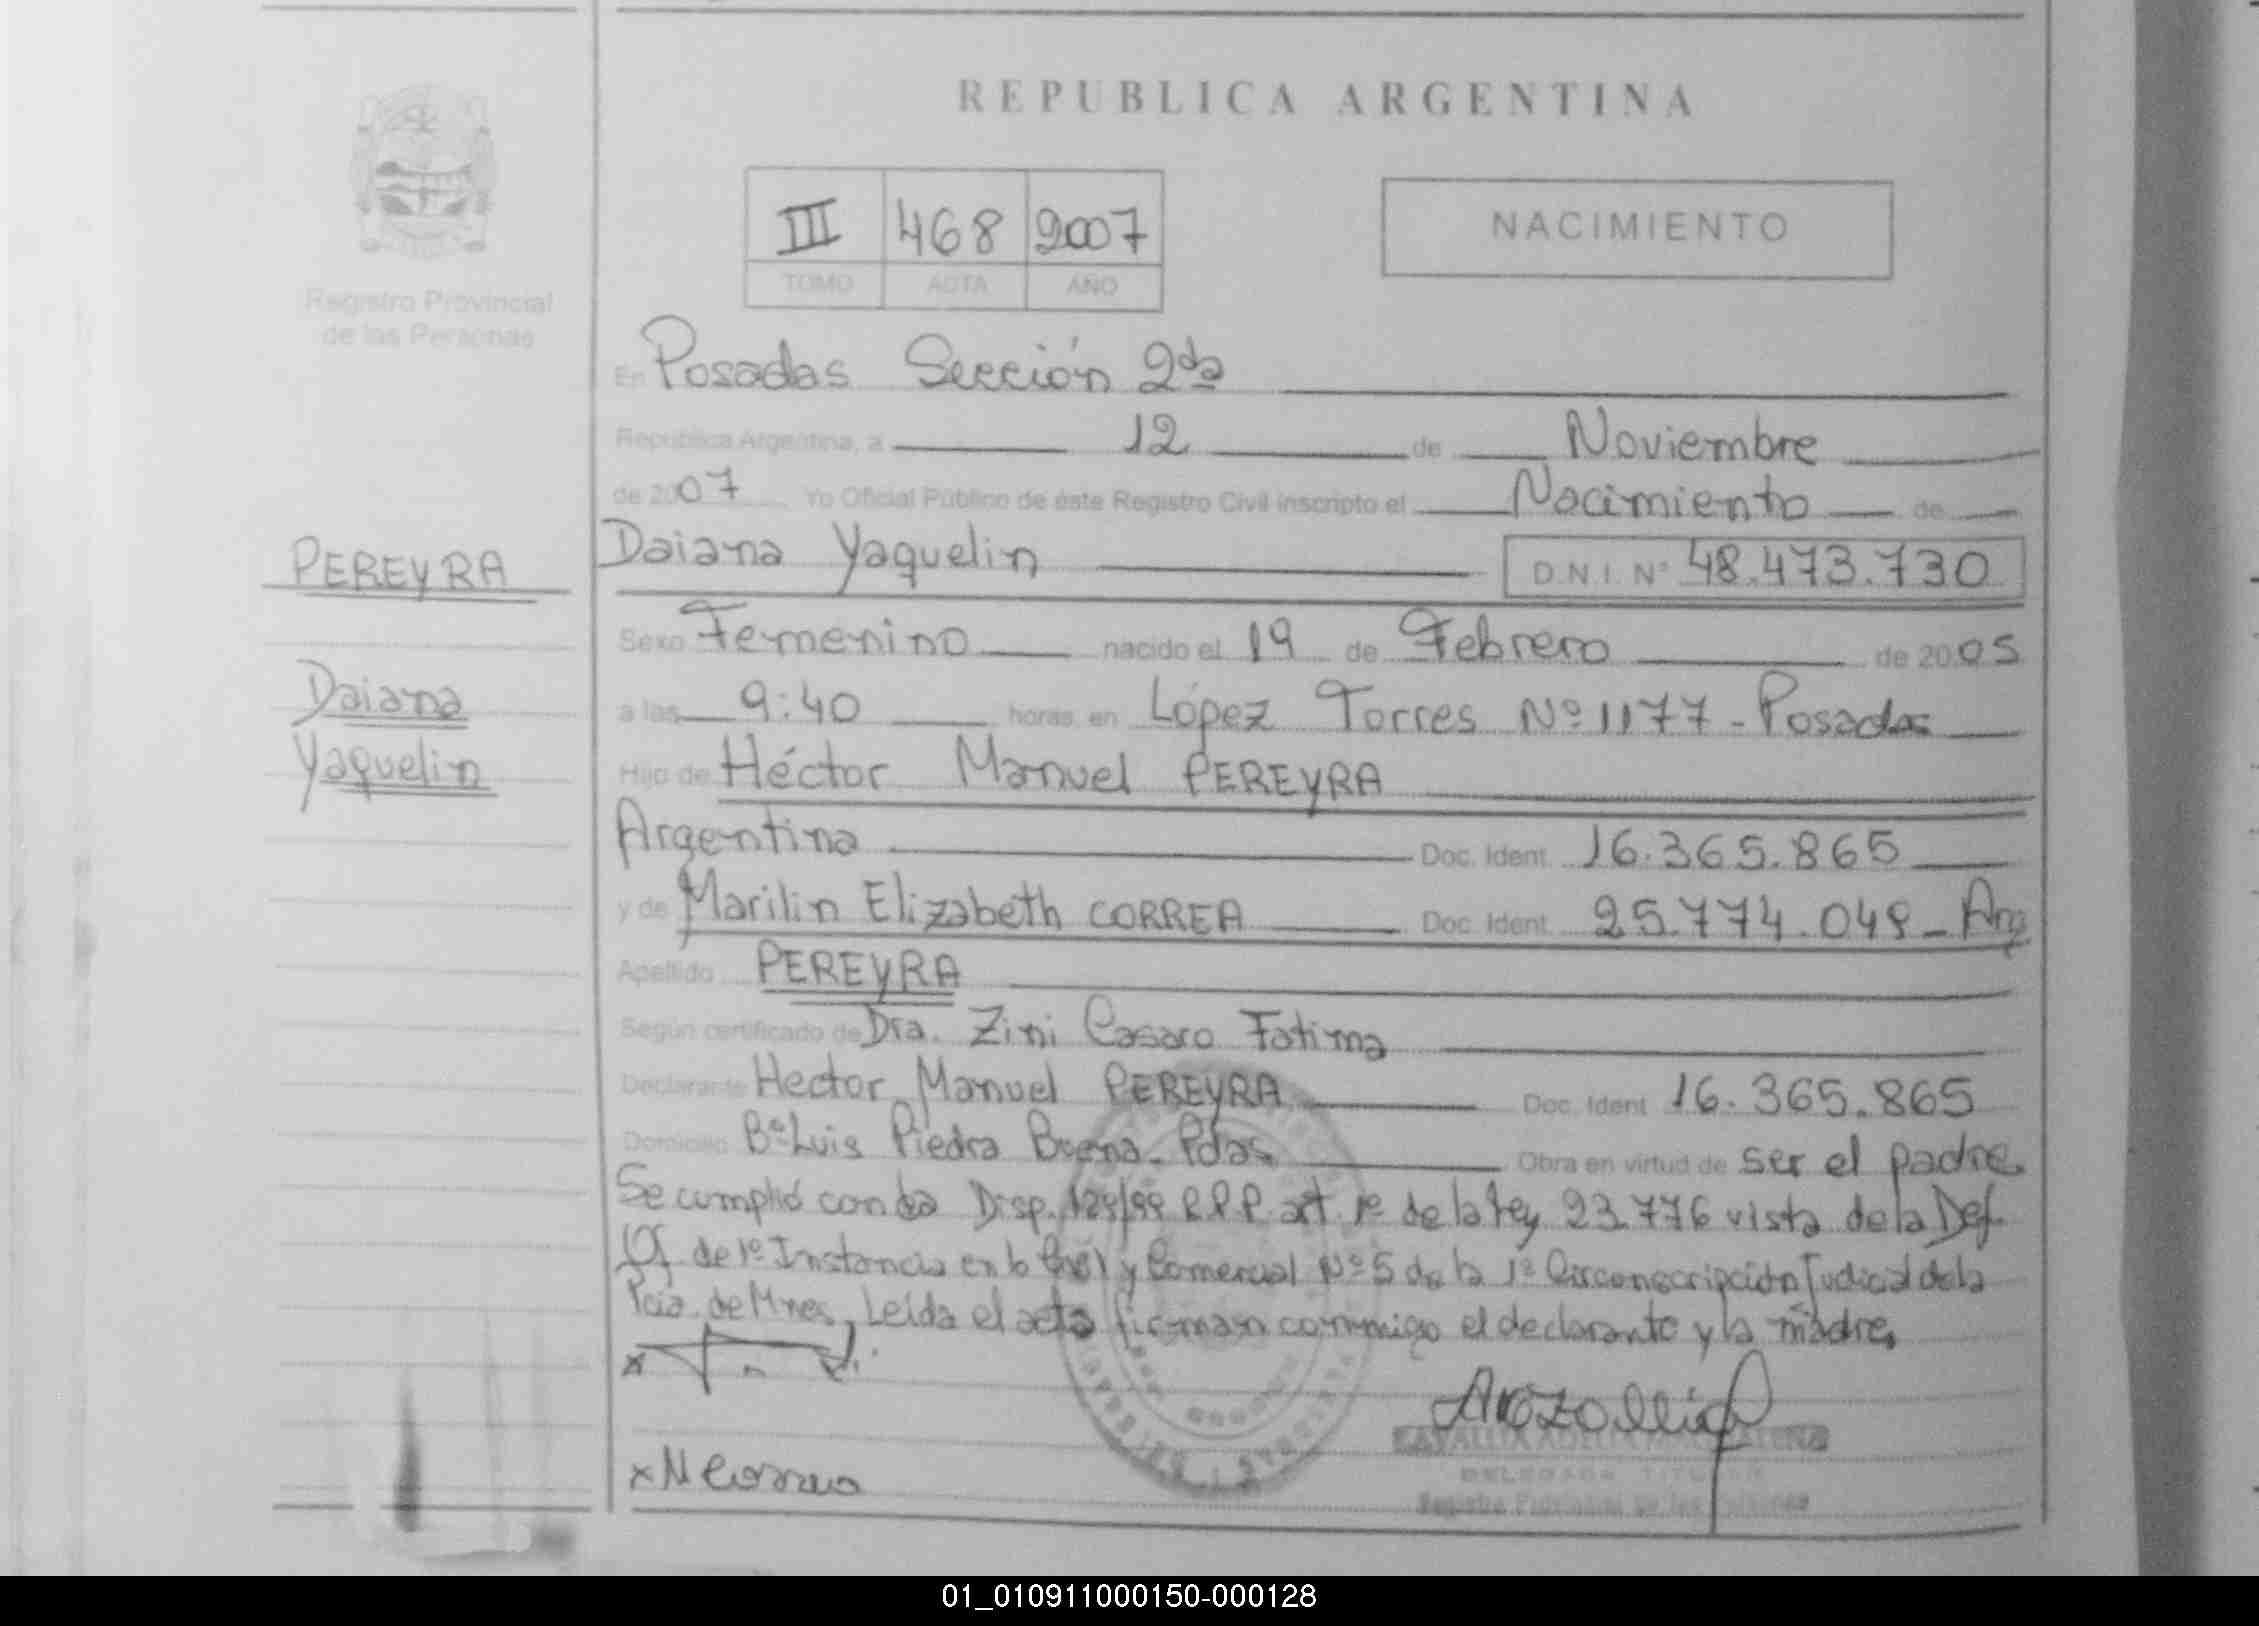 REPUBLICA ARGENTINA
III 468 2007
TOMO ACTA AÑO
NACIMIENTO
Registro Provincial
de las Personas
En Posadas Sección 2da
República Argentina, a 12 de Noviembre
de 2007 Yo Oficial Público de éste Registro Civil inscripto el Nacimiento de
PEREYRA
Daiana Yaquelin D.N.I. Nº 48.473.730
Sexo Femenino nacido el 19 de Febrero de 2005
Daiana
a las 9:40 horas en López Torres Nº 1177 - Posadas
Yaquelin
Hijo de Héctor Manuel PEREYRA
Argentina Doc. Ident. 16.365.865
y de Marilin Elizabeth CORREA Doc. Ident. 25.774.049 - Arg
Apellido PEREYRA
Según certificado de Dra. Zini Casaro Fatima
Declarante Hector Manuel PEREYRA Doc. Ident 16.365.865
Domicilio Bº Luis Piedra Buena - Pdas Obra en virtud de ser el padre
Se cumplió con la Disp. /99 R.P.P. art. 1º de la ley 23.776 vista de la Def.
Of. de 1º Instancia en lo Civil y Comercial Nº 5 de la 1º Circonscripción Judicial de la
Pcia. de Mnes, Leída el acta firman conmigo el declarante y la madre.
x
x M Correa
DELEGADA TITULAR
Registro Provincial de las Personas
01_010911000150-000128